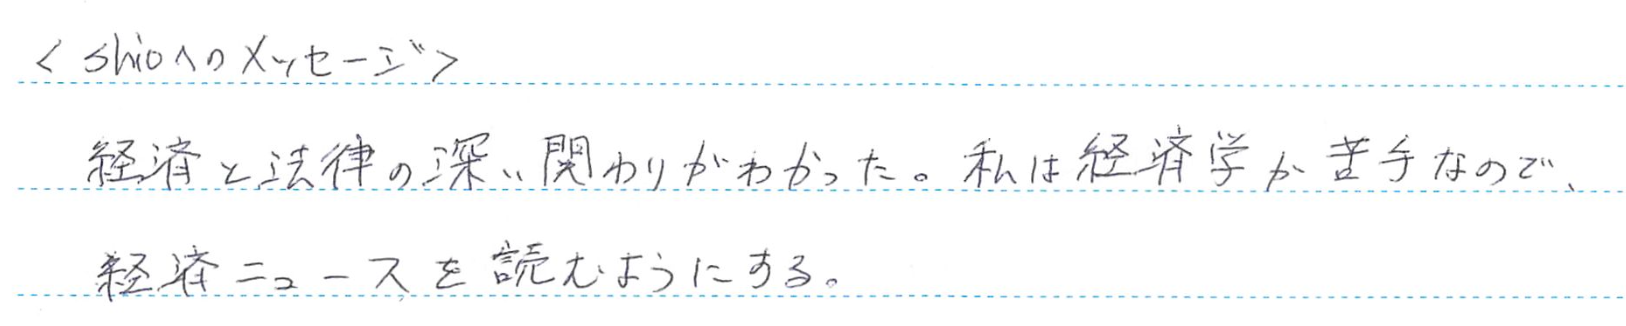 < shioへのメッセージ>
経済と法律の深い関わりがわかった。私は経済学が苦手なので、
経済ニュースを読むようにする。